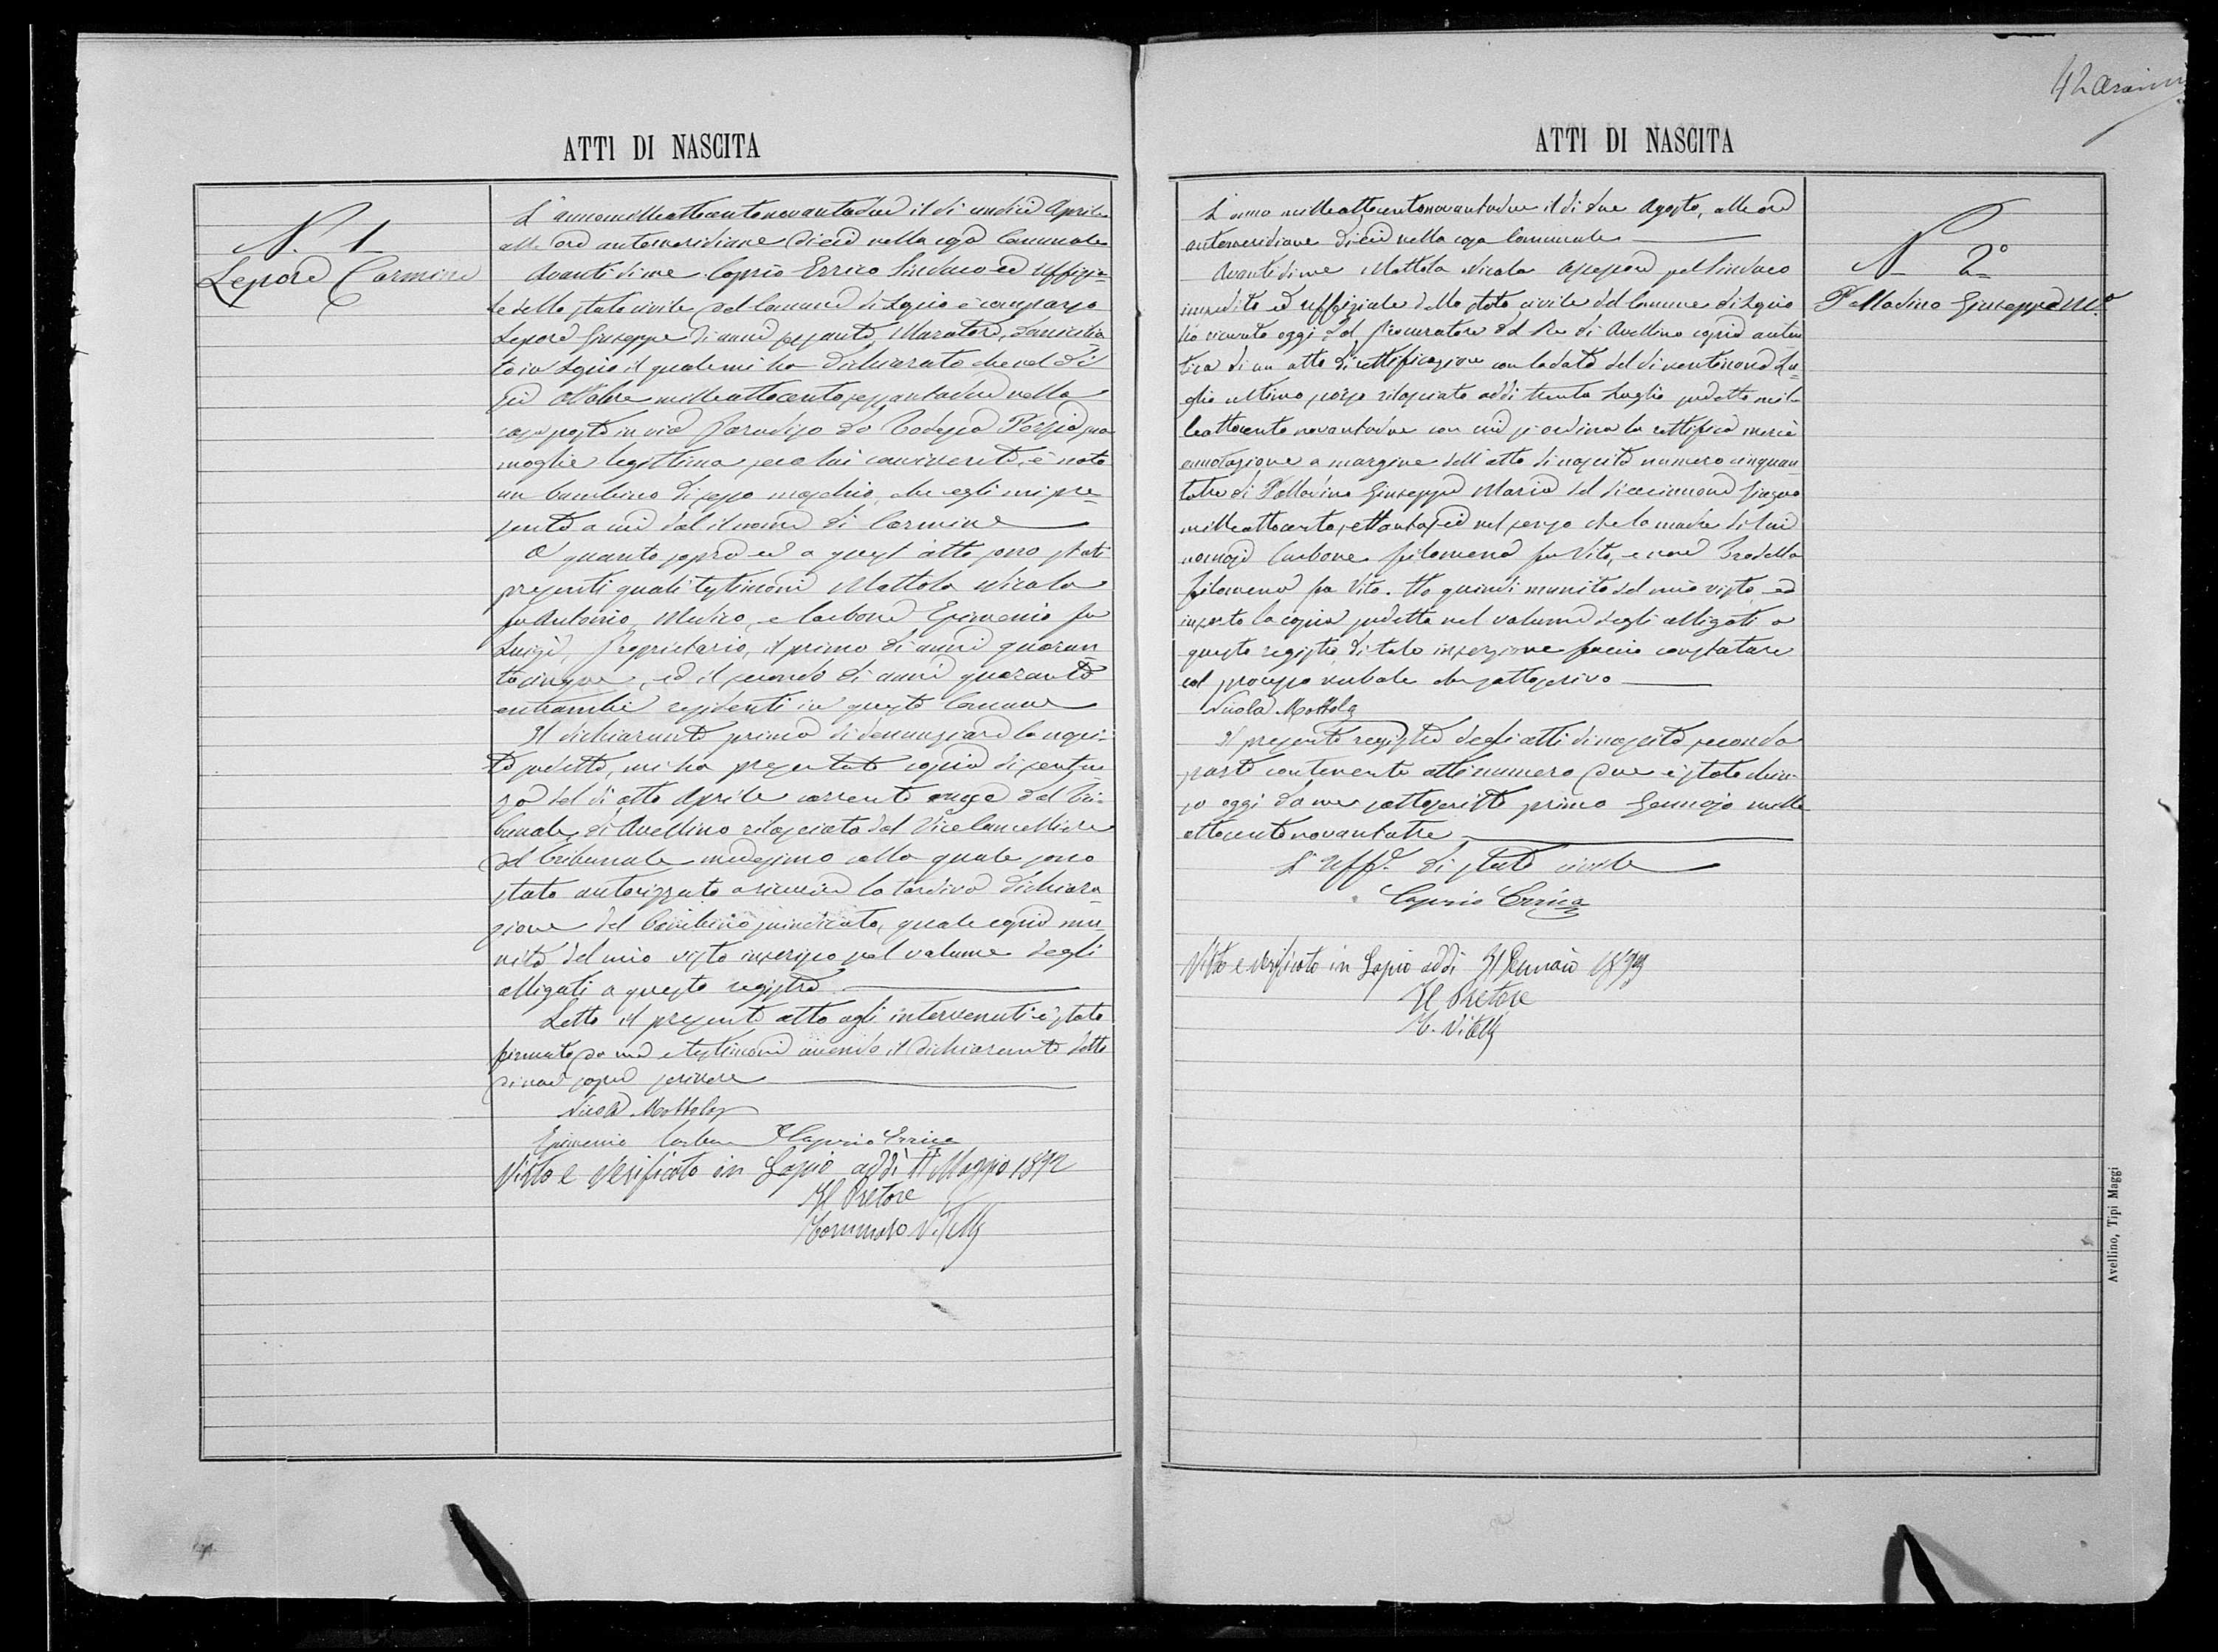 ATTI DI NASCITA
N. 1
Lepore Carmine
L'anno milleottocentonovantadue il dì undici Aprile
alle ore antemeridiane dieci nella casa Comunale
Avanti di me Caprio Errico Sindaco ed Uffizia-
le dello stato civile del Comune di Lapio è comparso
Lepore Giuseppe di anni sessanta, Muratore, domicilia
to in Lapio il quale mi ha dichiarato che nel dì
sei Ottobre milleottocentosessantadue nella
casa posta in via Paradiso da Codespa sua
moglie legittima, seco lui convivente, è nato
un bambino di sesso maschio, che egli mi pre-
senta a cui dà il nome di Carmine
A quanto sopra ed a quest'atto sono stati
presenti quali testimoni Mottola Nicola
fu Antonio, Medico, e Carbone Epimenio fu
Luigi, Proprietario, il primo di anni quaran
tacinque, ed il secondo di anni quaranta
entrambi residenti in questo Comune
Il dichiarante prima di denunziare la nasci-
ta sudetta, mi ha presentato copia di senten
za del dì otto Aprile corrente emessa dal Tri-
bunale di Avellino rilasciata dal Vice Cancelliere
del Tribunale medesimo colla quale sono
stato autorizzato a ricevere la tardiva dichiara-
zione del bambino summenzionato, quale copia mu-
nita del mio visto inserisco nel volume degli
alligati a questo registro
Letto il presente atto agli intervenuti è stato
firmato da me e testimoni avendo il dichiarante detto
di non sapere scrivere
Nicola Mottola
Epimenio Carbone Caprio Errico
Visto e verificato in Lapio addì 11 Maggio 1892
Il Pretore
Tommaso Vitelli
ATTI DI NASCITA
L'anno milleottocentonovantadue il dì due Agosto, alle ore
antemeridiane dieci nella casa Comunale
Avanti di me Mottola Nicola Assessore pel Sindaco
impedito ed uffiziale dello stato civile del Comune di Lapio
ho ricevuto oggi dal Procuratore del Re di Avellino copia auten
tica di un atto di rettificazione con la data del dì ventinove Lu-
glio ultimo scorso rilasciato addì trenta Luglio sudetto mil-
leottocento novantadue con cui si ordina la rettifica mercè
annotazione a margine dell'atto di nascita numero cinquan
tatre di Palladino Giuseppe Maria del diecinnove Giugno
milleottocento settantasei nel senso che la madre di lui
nomasi Carbone Filomena fu Vito, e non Trodella
Filomena fu Vito. Ho quindi munito del mio visto ed
inserto la copia sudetta nel volume degli alligati a
questo registro, di tale inserzione faccio constatare
col processo verbale che sottoscrivo
Nicola Mottola
Il presente registro degli atti di nascita seconda
parte contenente atti numero due è stato chiu-
so oggi da me sottoscritto primo Gennajo mille
ottocentonovantatre
L'Uff.e di stato civile
Caprio Errico
Visto e verificato in Lapio addì 31 Gennaio
Il Pretore
T. Vitelli
N 2°
Palladino Giuseppe M.a
Avellino, Tipi Maggi